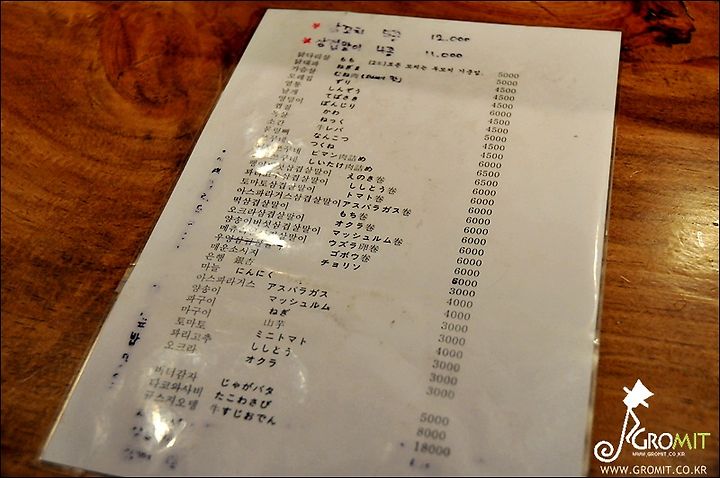 ★ 닭꼬치 5종 12,000
★ 삼겹말이 4종 11,000
닭다리살 もも 5000
닭대파 ねぎま 5000
가슴살 むね肉 4500
모래집 ずり 4500
염통 しんぞう 4500
날개 てばさき 6000
엉덩이 ぼんじり 4500
껍질 かわ 4500
목살 ねっく 5000
소간 牛レバ 4500
물렁뼈 なんこつ 5000
つくね 4500
ピマン肉詰め 6000
しいたけ肉詰め 6500
팽이버섯삼겹살말이 えのき巻 6000
꽈리고추삼겹살말이 ししとう巻 6000
토마토삼겹살말이 トマト巻 6000
아스파라거스삼겹살말이 アスパラガス巻 6000
떡삼겹살말이 もち巻 6000
오크라삼겹살말이 オクラ巻 6000
양송이버섯삼겹살말이 マッシュルム巻 6000
메츄리알삼겹살말이 ウズラ卵巻 6000
ゴボウ巻 6000
매운소시지 チョリソ 6000
은행 銀杏 3000
마늘 にんにく 4000
아스파라거스 アスパラガス 4000
양송이 マッシュルム 3000
파구이 ねぎ 3000
마구이 山芋 4000
토마토 ミニトマト 3000
꽈리고추 ししとう 3000
오크라 オクラ 3000
버터감자 じゃがバタ 5000
타코와사비 たこわさび 8000
규스지오뎅 牛すじおでん 18000
GROMIT
WWW.GROMIT.CO.KR
WWW.GROMIT.CO.KR